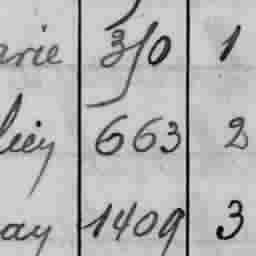 arie 350 1
liey 663 2
ay 1409 3